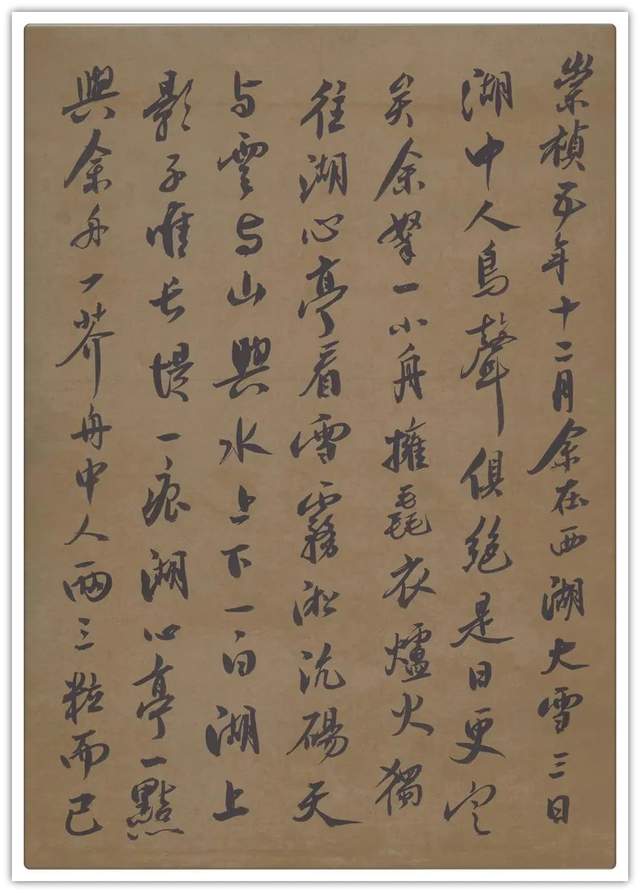 崇禎五年十二月余在西湖大雪三日
湖中人鳥聲俱絕是日更定
矣余拏一小舟擁毳衣爐火獨
往湖心亭看雪霧淞沆碭天
与雲与山與水上下一白湖上
影子唯長堤一痕湖心亭一點
與余舟一芥舟中人兩三粒而已